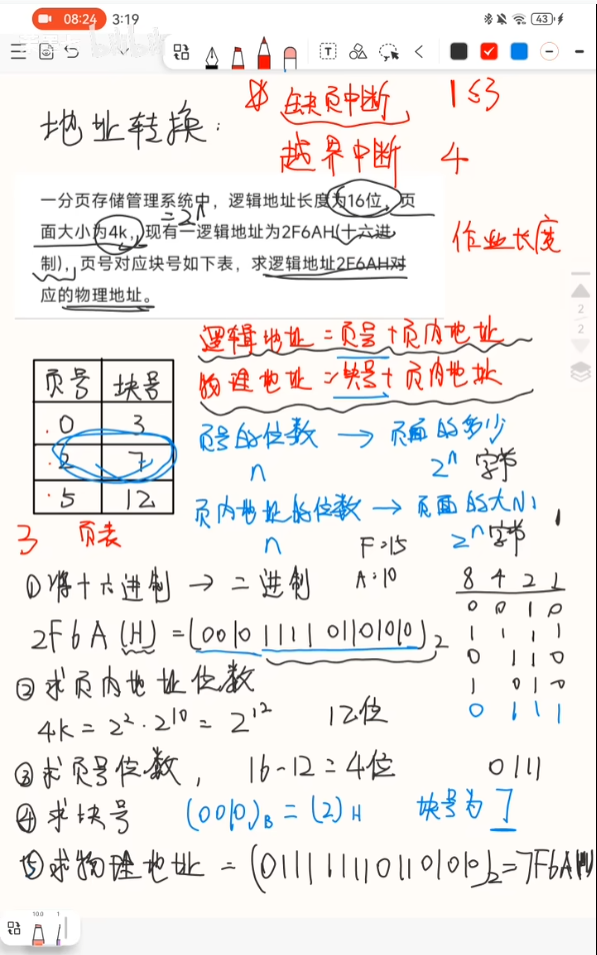 08:24 3:19 43
T
地址转换:
缺页中断, 1 5 3
越界中断 4
一分页存储管理系统中，逻辑地址长度为16位，页
=2^n
面大小为4k，现有一逻辑地址为2F6AH(十六进
制)，页号对应块号如下表，求逻辑地址2F6AH对
应的物理地址。
作业长度
2
2
逻辑地址=页号+页内地址
物理地址=块号+页内地址
页号 块号
0 3
2 7
5 12
3 页表
页号的位数 → 页面的多少
n 2^n 字节
页内地址的位数 → 页面的大小
n 2^n 字节
F:15
A:10
①将十六进制 → 二进制
2F6A(H)=(0010 1111 0110 1010)_2
8 4 2 1
0 0 1 0
1 1 1 1
0 1 1 0
1 0 1 0
0 1 1 1
②求页内地址位数
4K=2^2·2^10=2^12 12位
③求页号位数, 16-12=4位 0111
④求块号 (0010)_B=(2)_H 块号为7
⑤求物理地址=(0111111101101010)_2=7F6A(H)
10.0 1